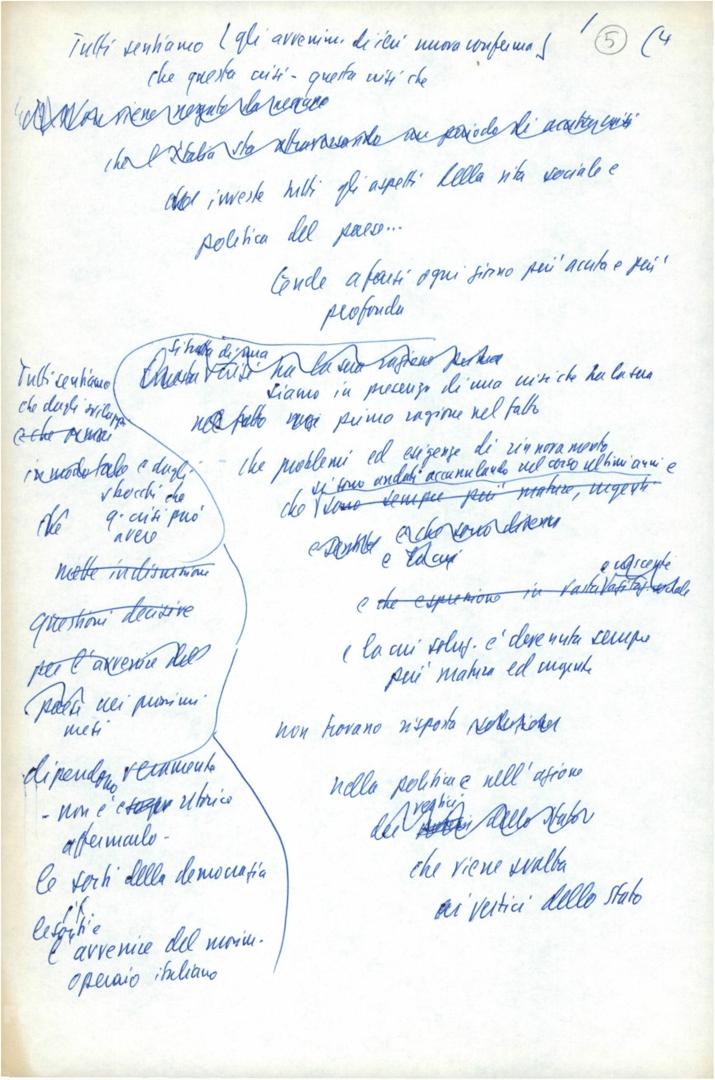 5 (4
Tutti sentiamo (gli avvenim. di ieri nuova conferma)
che questa crisi - questa crisi che
Non viene negato da nessuno
che l'Italia sta attraversando un periodo di acuta crisi
che investe tutti gli aspetti della vita sociale e
politica del paese...
tende a farsi ogni giorno più acuta e più
profonda
si tratta di una
Questa crisi ha la sua ragione prima
siamo in presenza di una crisi che ha la sua
nel fatto prima ragione nel fatto
che problemi ed esigenze di rinnovamento
si sono andati accumulando nel corso ultimi anni e
che sono sempre più mature, urgenti
e che sono divenu
e la cui
e crescente
e che esprimono in vasta sociale
e la cui soluz. è divenuta sempre
più matura ed urgente
non trovano risposta soluzione
nella politica e nell'azione
vertici
dei dello Stato
che viene svolta
ai vertici dello stato
Tutti sentiamo
che dagli sviluppi
e che ormai
in modo tale e dagli
sbocchi che
q. crisi può
avere
mette in discussione
questioni decisive
per l'avvenire del
paese nei prossimi
mesi
dipendono veramente
- non è retorico
affermarlo -
le sorti della democrazia
le sorti e
l'avvenire del movim.
operaio italiano